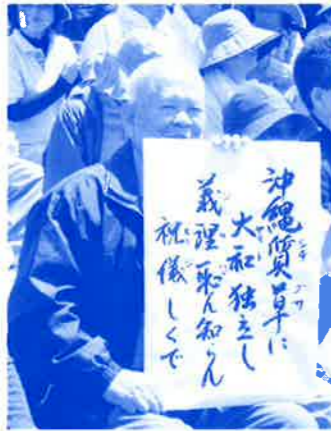 沖縄質草に
大和独立し
義理恥ん知らん
祝儀しくで